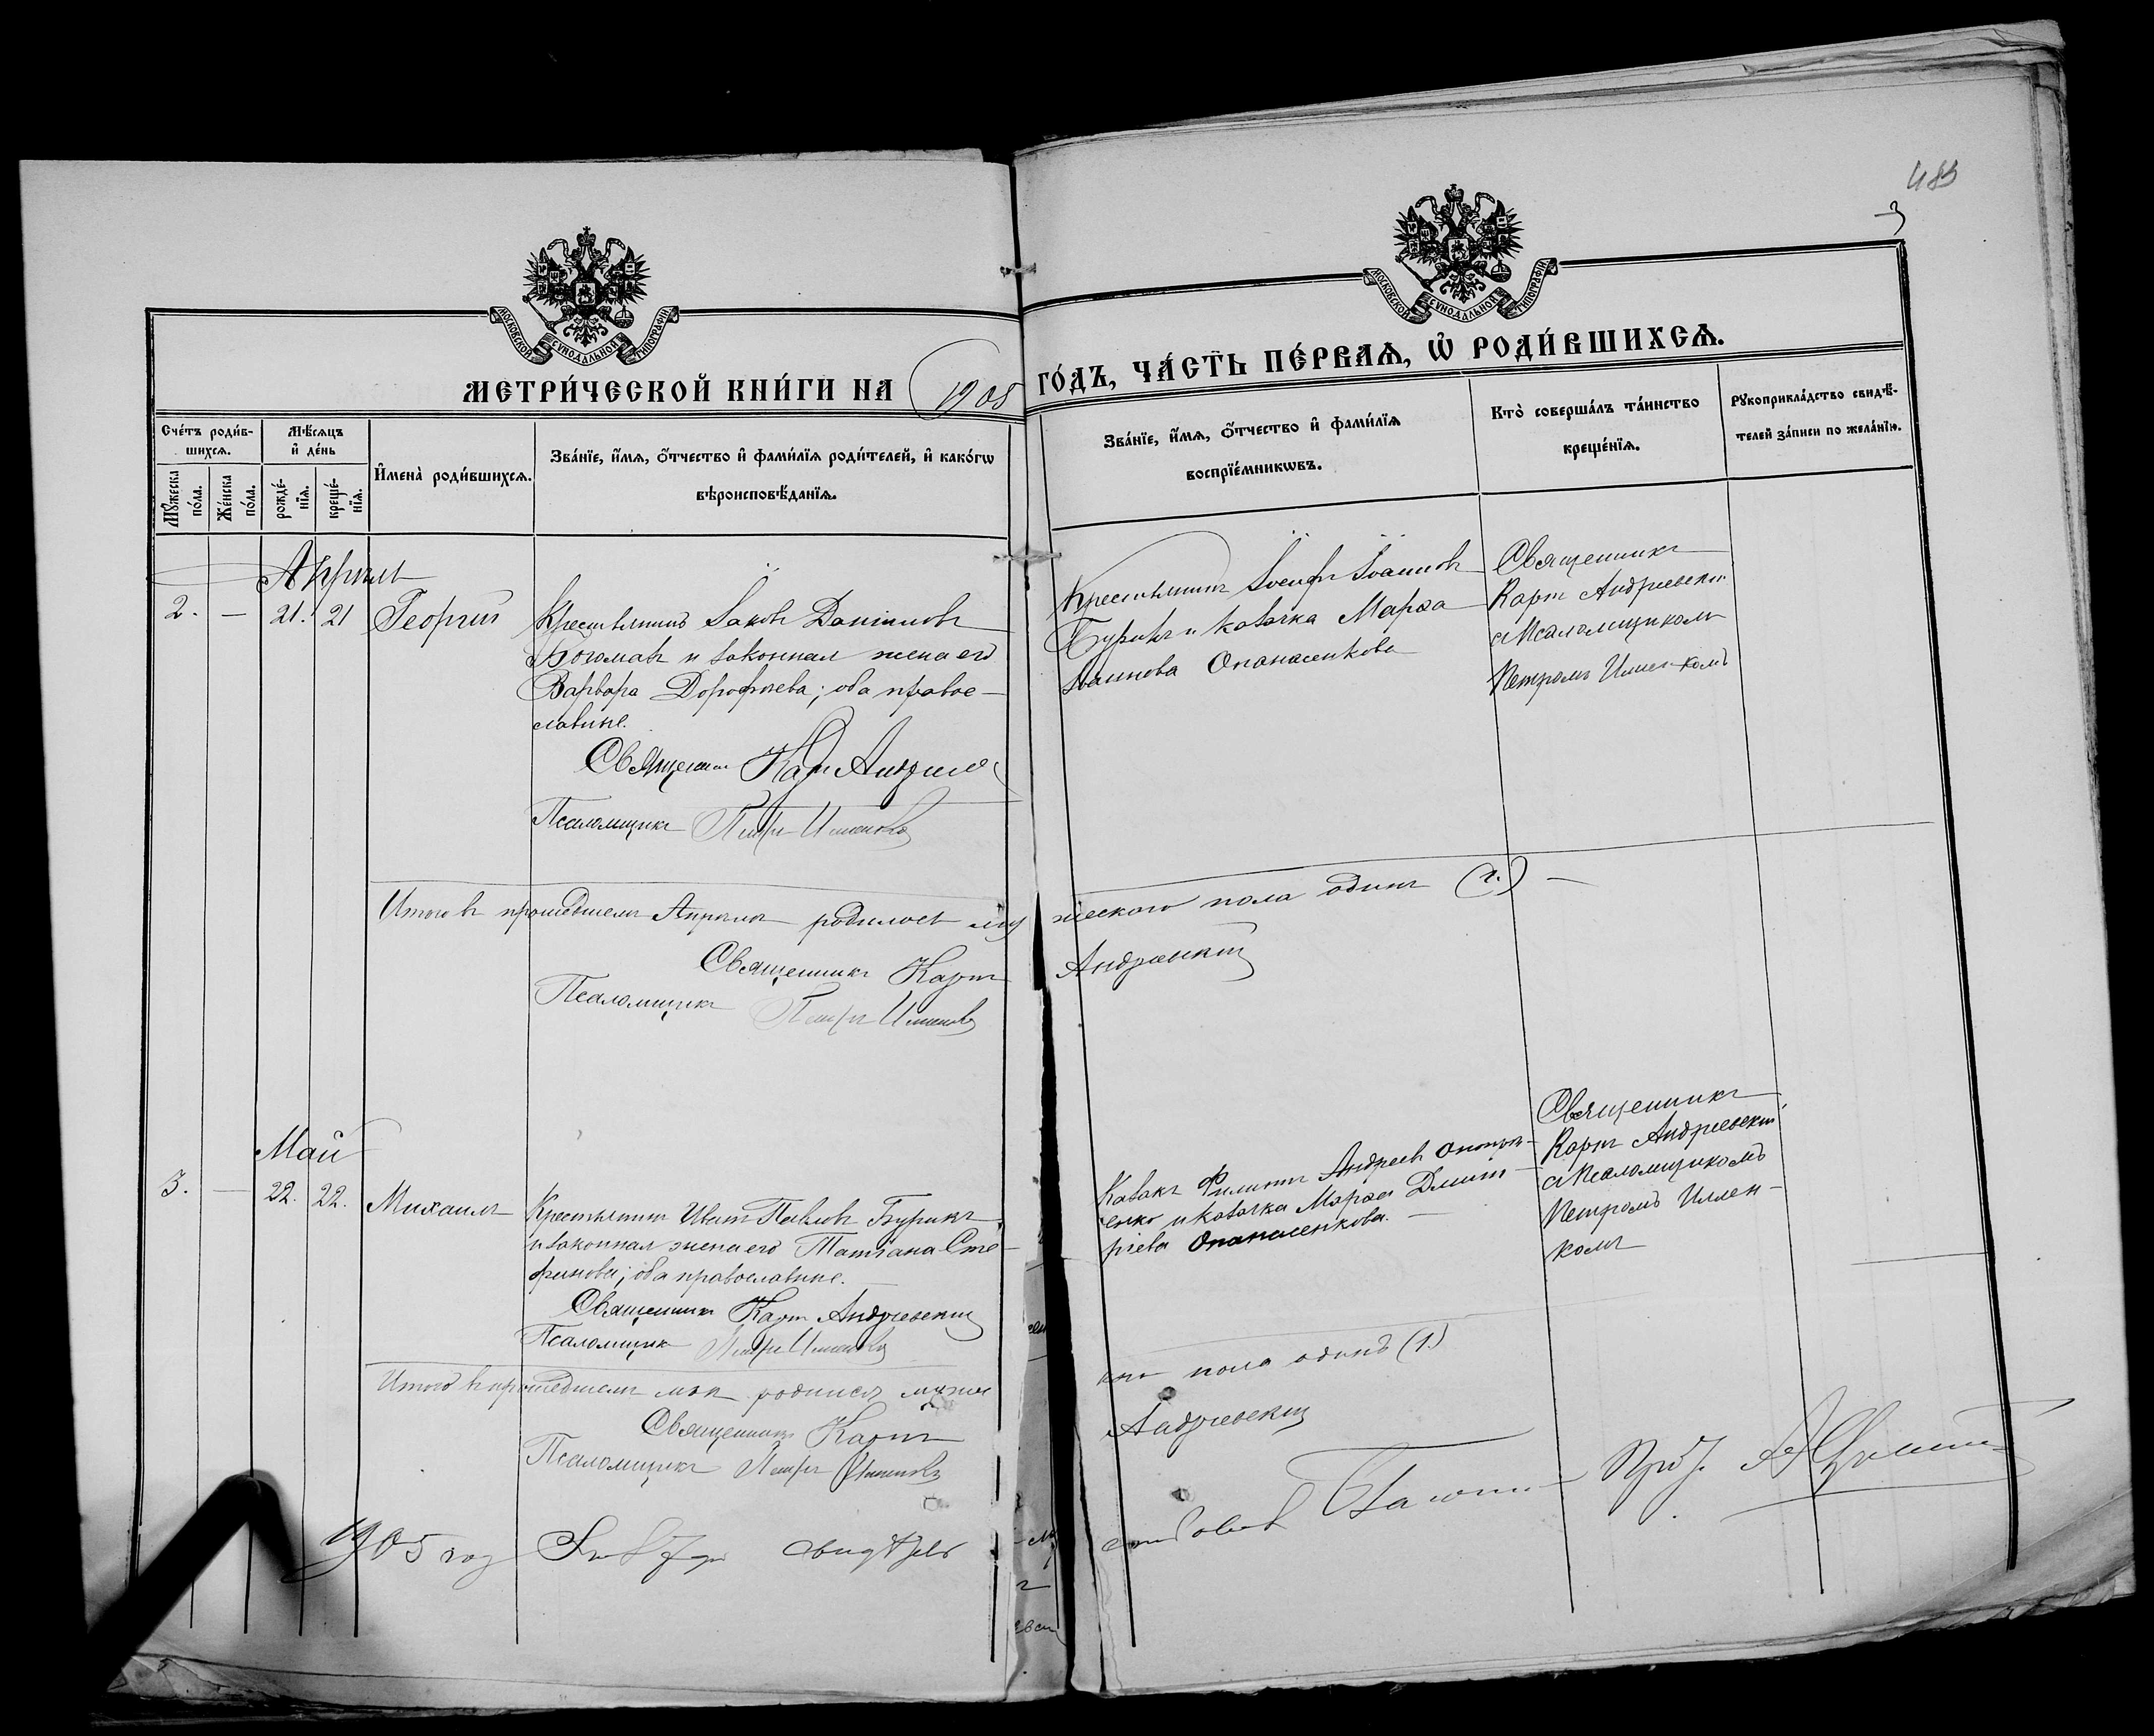 483
3
МОСКОВСКОЙ СѴНОДАЛЬНОЙ ТИПОГРАФІИ
МОСКОВСКОЙ СѴНОДАЛЬНОЙ ТИПОГРАФІИ
МЕТРИ́ЧЕСКОЙ КНИ́ГИ НА 1905 ГО́ДЪ, ЧА́СТЬ ПЕ́РВАѦ, Ѡ҆ РОДИ́ВШИХСѦ.
Сче́тъ роди́в-
шихсѧ.
Мꙋ́жеска по́ла.
Же́нска по́ла.
Мѣ́сѧцъ и҆ де́нь
рожде́-
нїѧ.
креще́-
нїѧ.
И҆мена̀ роди́вшихсѧ.
Зва́нїе, и҆́мѧ, ѻ҆́тчество и҆ фами́лїѧ роди́телей, и҆ како́гѡ
вѣроисповѣ́данїѧ.
Зва́нїе, и҆́мѧ, ѻ҆́тчество и҆ фами́лїѧ
воспрїе́мникѡвъ.
Кто̀ соверша́лъ та́инство
креще́нїѧ.
Рꙋкоприкла́дство свидѣ́-
телей за́писи по жела́нїю.
Апрѣль
2. — 21. 21 Георгій
Крестьянинъ Іаковъ Даніиловъ
и законная жена его
Варвара Дорофѣева; оба право-
славные.
Священникъ Карпъ Андріевскій
Псаломщикъ Петръ Именко
Крестьянинъ Іосифъ Іоанновъ
Бурикъ и козачка Марѳа
Іоаннова Опанасенкова
Священникъ
Карпъ Андріевскій
съ Псаломщикомъ
Петромъ Именкомъ
Итого въ прошедшемъ Апрѣлѣ родилось мужескаго пола одинъ (1.) —
Священникъ Карпъ Андріевскій
Псаломщикъ Петръ Именко
Май
3. — 22. 22. Михаилъ
Крестьянинъ Иванъ Павловъ Бурикъ
и законная жена его Татіана Сте-
фанова; оба православные.
Священникъ Карпъ Андріевскій
Псаломщикъ Петръ Именко
Козакъ Филиппъ Андреевъ
енко и козачка Марѳа Димит-
ріева Опанасенкова. —
Священникъ
Карпъ Андріевскій
съ Псаломщикомъ
Петромъ Имен-
комъ
Итого въ прошедшемъ маѣ родился мужескаго пола одинъ (1.)
Священникъ Карпъ Андріевскій
Псаломщикъ Петръ Именко
1905 год